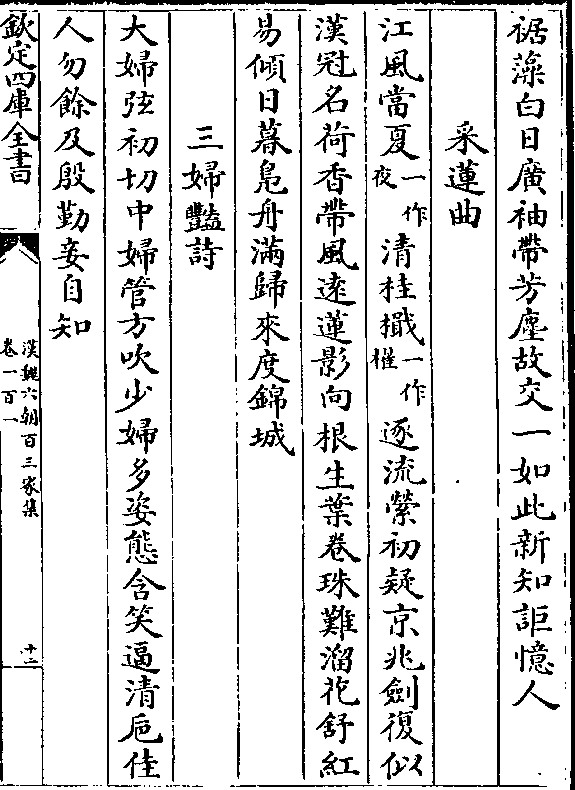 裾藻白日廣袖帶芳塵故交一如此新知詎憶人
采蓮曲
江風當夏一作夜清桂檝一作櫂逐流縈初疑京兆劍復似
漢冠名荷香帶風遠蓮影向根生葉卷珠難溜花舒紅
易傾日暮鳧舟滿歸來度錦城
三婦豔詩
大婦弦初切中婦管方吹少婦多姿態含笑逼清巵佳
人勿餘及殷勤妾自知
欽定四庫全書
漢魏六朝百三家集
卷一百一
十二